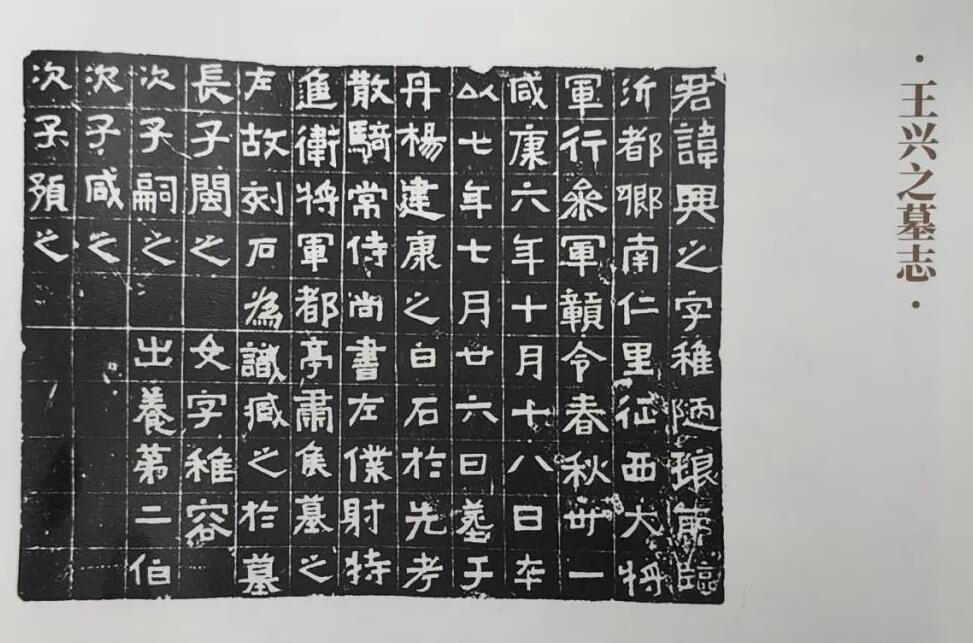 ·王兴之墓志·
君諱興之字稚陋琅耶臨
沂都鄉南仁里征西大將
軍行叅軍贛令春秋卅一
咸康六年十月十八日卒
以七年七月廿六日塟于
丹楊建康之白石於先考
散騎常侍尚書左僕射特
進衛將軍都亭肅侯墓之
左故刻石為識臧之於墓
長子閩之 女字稚容
次子嗣之 出養第二伯
次子咸之
次子預之